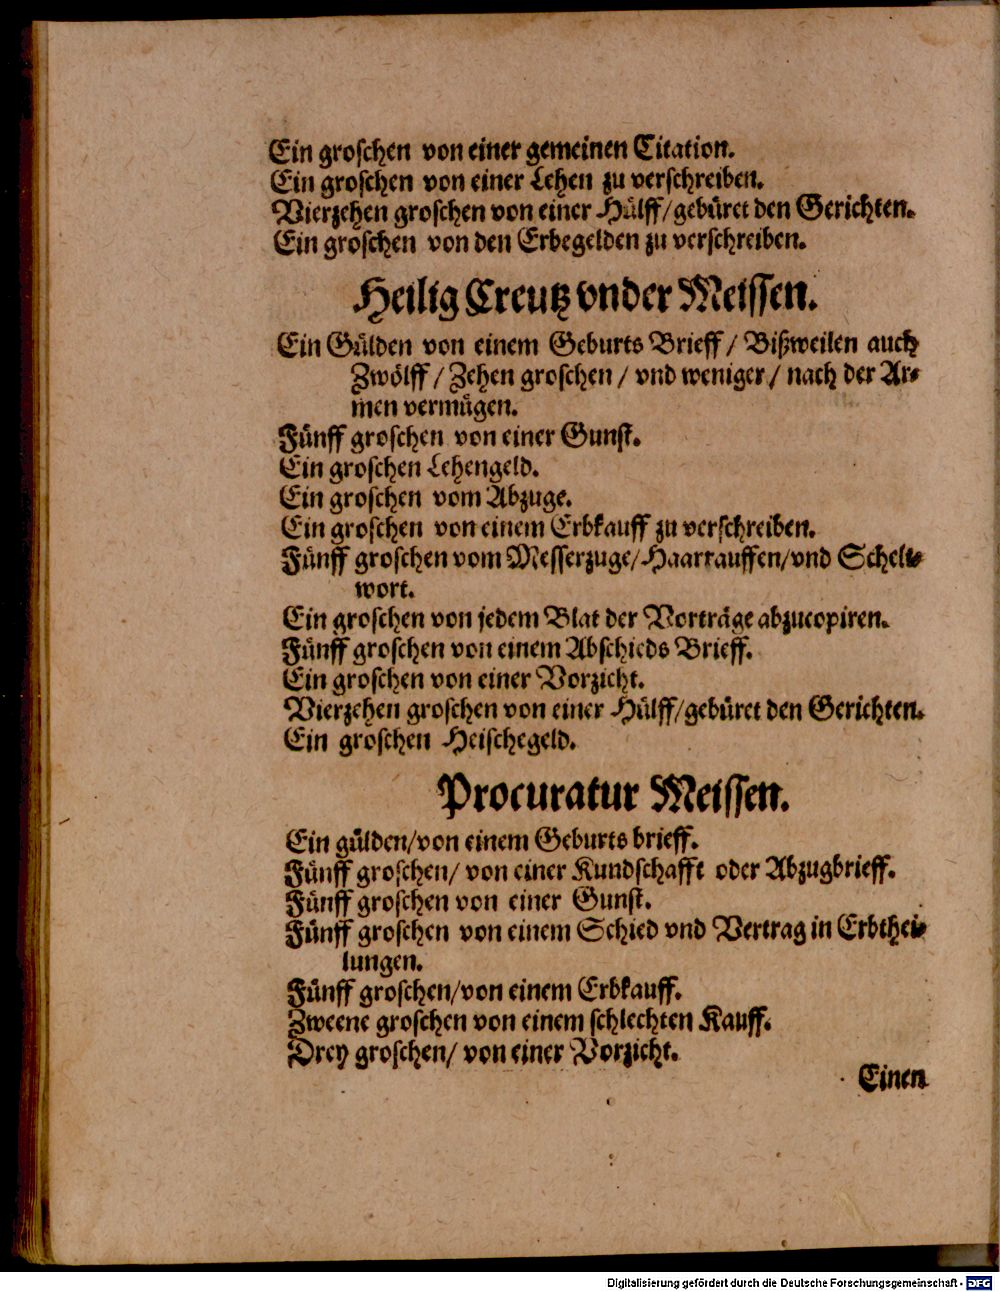 Ein groschen von einer gemeinen Citation.
Ein groschen von einer Lehen zu verschreiben.
Vierzehen groschen von einer Hülff/gebüret den Gerichten.
Ein groschen von den Erbegelden zu verschreiben.
Heilig Creutz vnder Meissen.
Ein Gülden von einem Geburts Brieff / Bißweilen auch
Zwölff / Zehen groschen / vnd weniger / nach der Ar-
men vermügen.
Fünff groschen von einer Gunst.
Ein groschen Lehengeld.
Ein groschen vom Abzuge.
Ein groschen von einem Erbkauff zu verschreiben.
Fünff groschen vom Messerzuge/Haarrauffen/vnd Schelt-
wort.
Ein groschen von jedem Blat der Vorträge abzucopiren.
Fünff groschen von einem Abschieds Brieff.
Ein groschen von einer Vorzicht.
Vierzehen groschen von einer Hülff/gebüret den Gerichten.
Ein groschen Heischegeld.
Procuratur Meissen.
Ein gülden/von einem Geburts brieff.
Fünff groschen/ von einer Kundschafft oder Abzugbrieff.
Fünff groschen von einer Gunst.
Fünff groschen von einem Schied vnd Vertrag in Erbthei-
lungen.
Fünff groschen/von einem Erbkauff.
Zweene groschen von einem schlechten Kauff.
Drey groschen/ von einer Vorzicht.
Einen
Digitalisierung gefördert durch die Deutsche Forschungsgemeinschaft - DFG